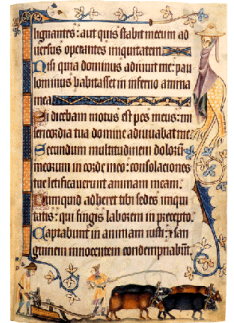 lignantes: aut quis stabit mecum ad
uersus operantes iniquitatem
Nisi quia dominus adiuuit me: pau
lominus habitasset in inferno anima
mea
Si dicebam motus est pes meus: mi
sericordia tua domine adiuuabat me
Secundum multitudinem dolorum
meorum in corde meo: consolaciones
tue letificauerunt animam meam.
Numquid adheret tibi sedes iniqui
tatis: qui fingis laborem in precepto.
Captabunt in animam iusti: et san
guinem innocentem condempnabunt.